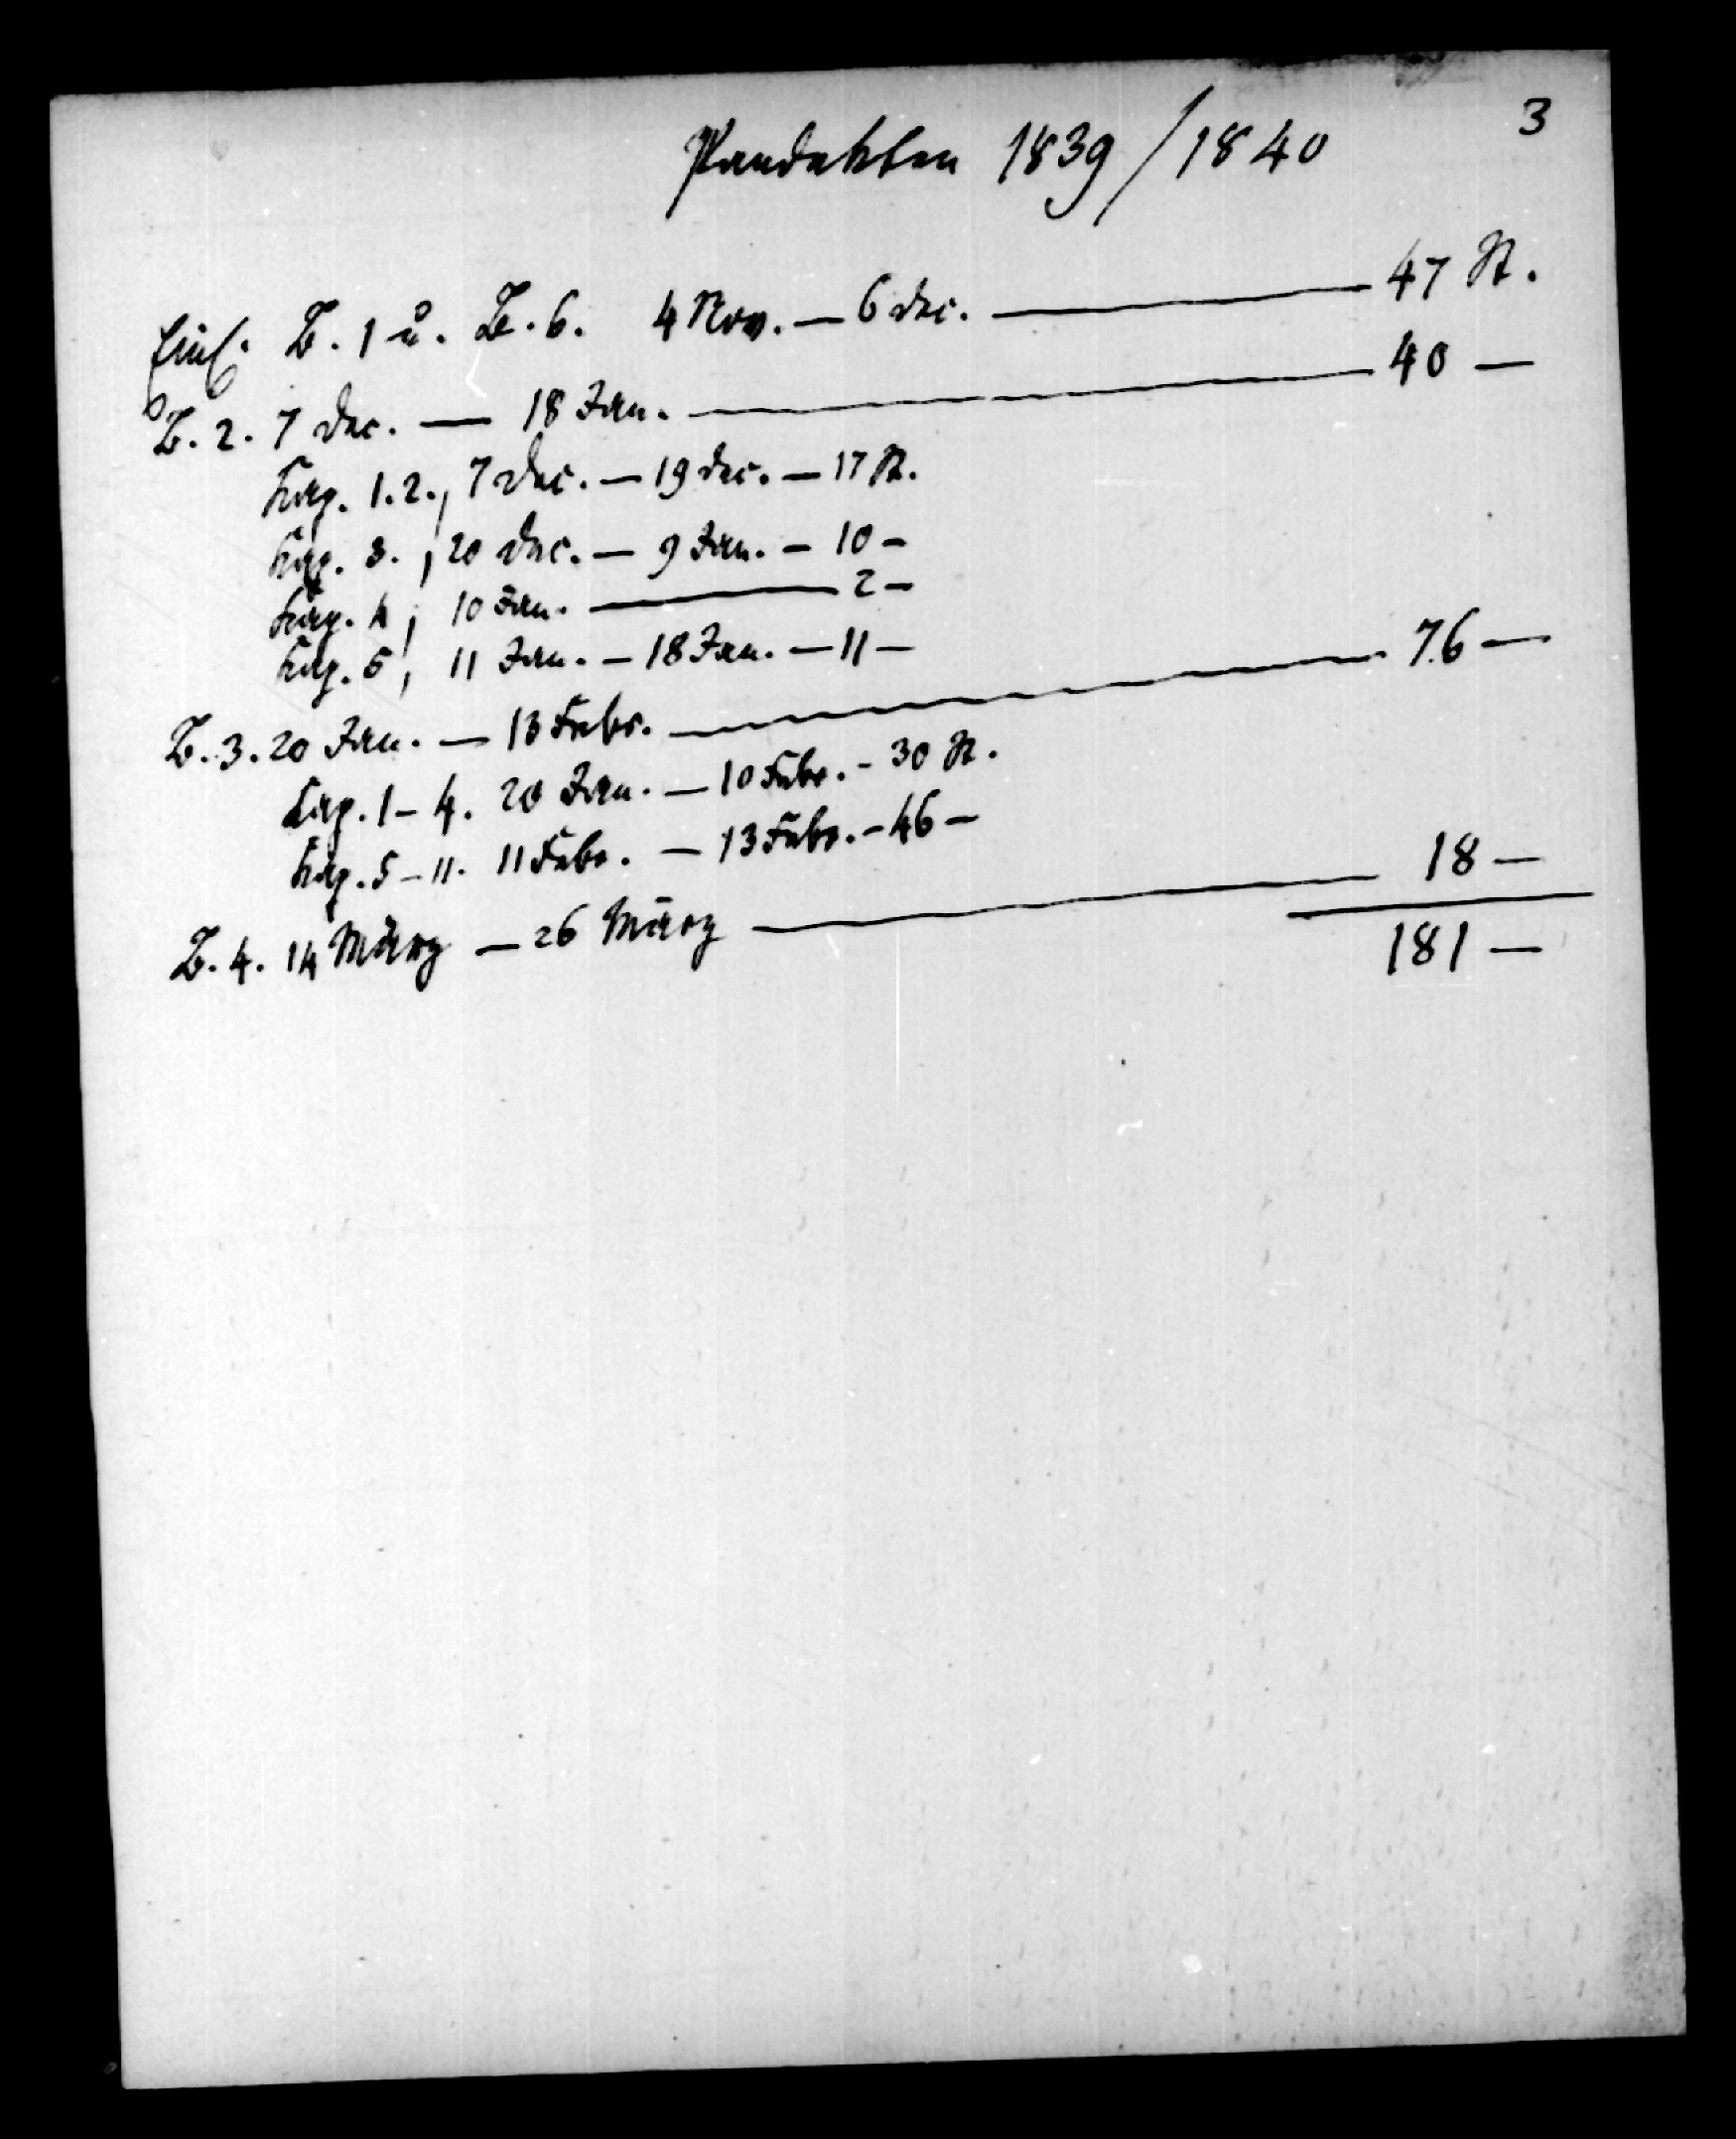 3
Pandekten 1839/1840
Einl. B. 1 u. B. 6. 4 Nov. — 6 Dec. — 47 St.
B. 2. 7 Dec. — 18 Jan. — 40 —
Kap. 1. 2., 7 Dec. — 19 Dec. — 17 St.
Kap. 3., 20 Dec. — 9 Jan. — 10 —
Kap. 4, 10 Jan. — 2 —
Kap. 5, 11 Jan. — 18 Jan. — 11 —
B. 3. 20 Jan. — 13 Febr. — 76 —
Kap. 1 — 4. 20 Jan. — 10 Febr. — 30 St.
Kap. 5 — 11. 11 Febr. — 13 Febr. — 46 —
B. 4. 14 März — 26 März — 18 —
181 —